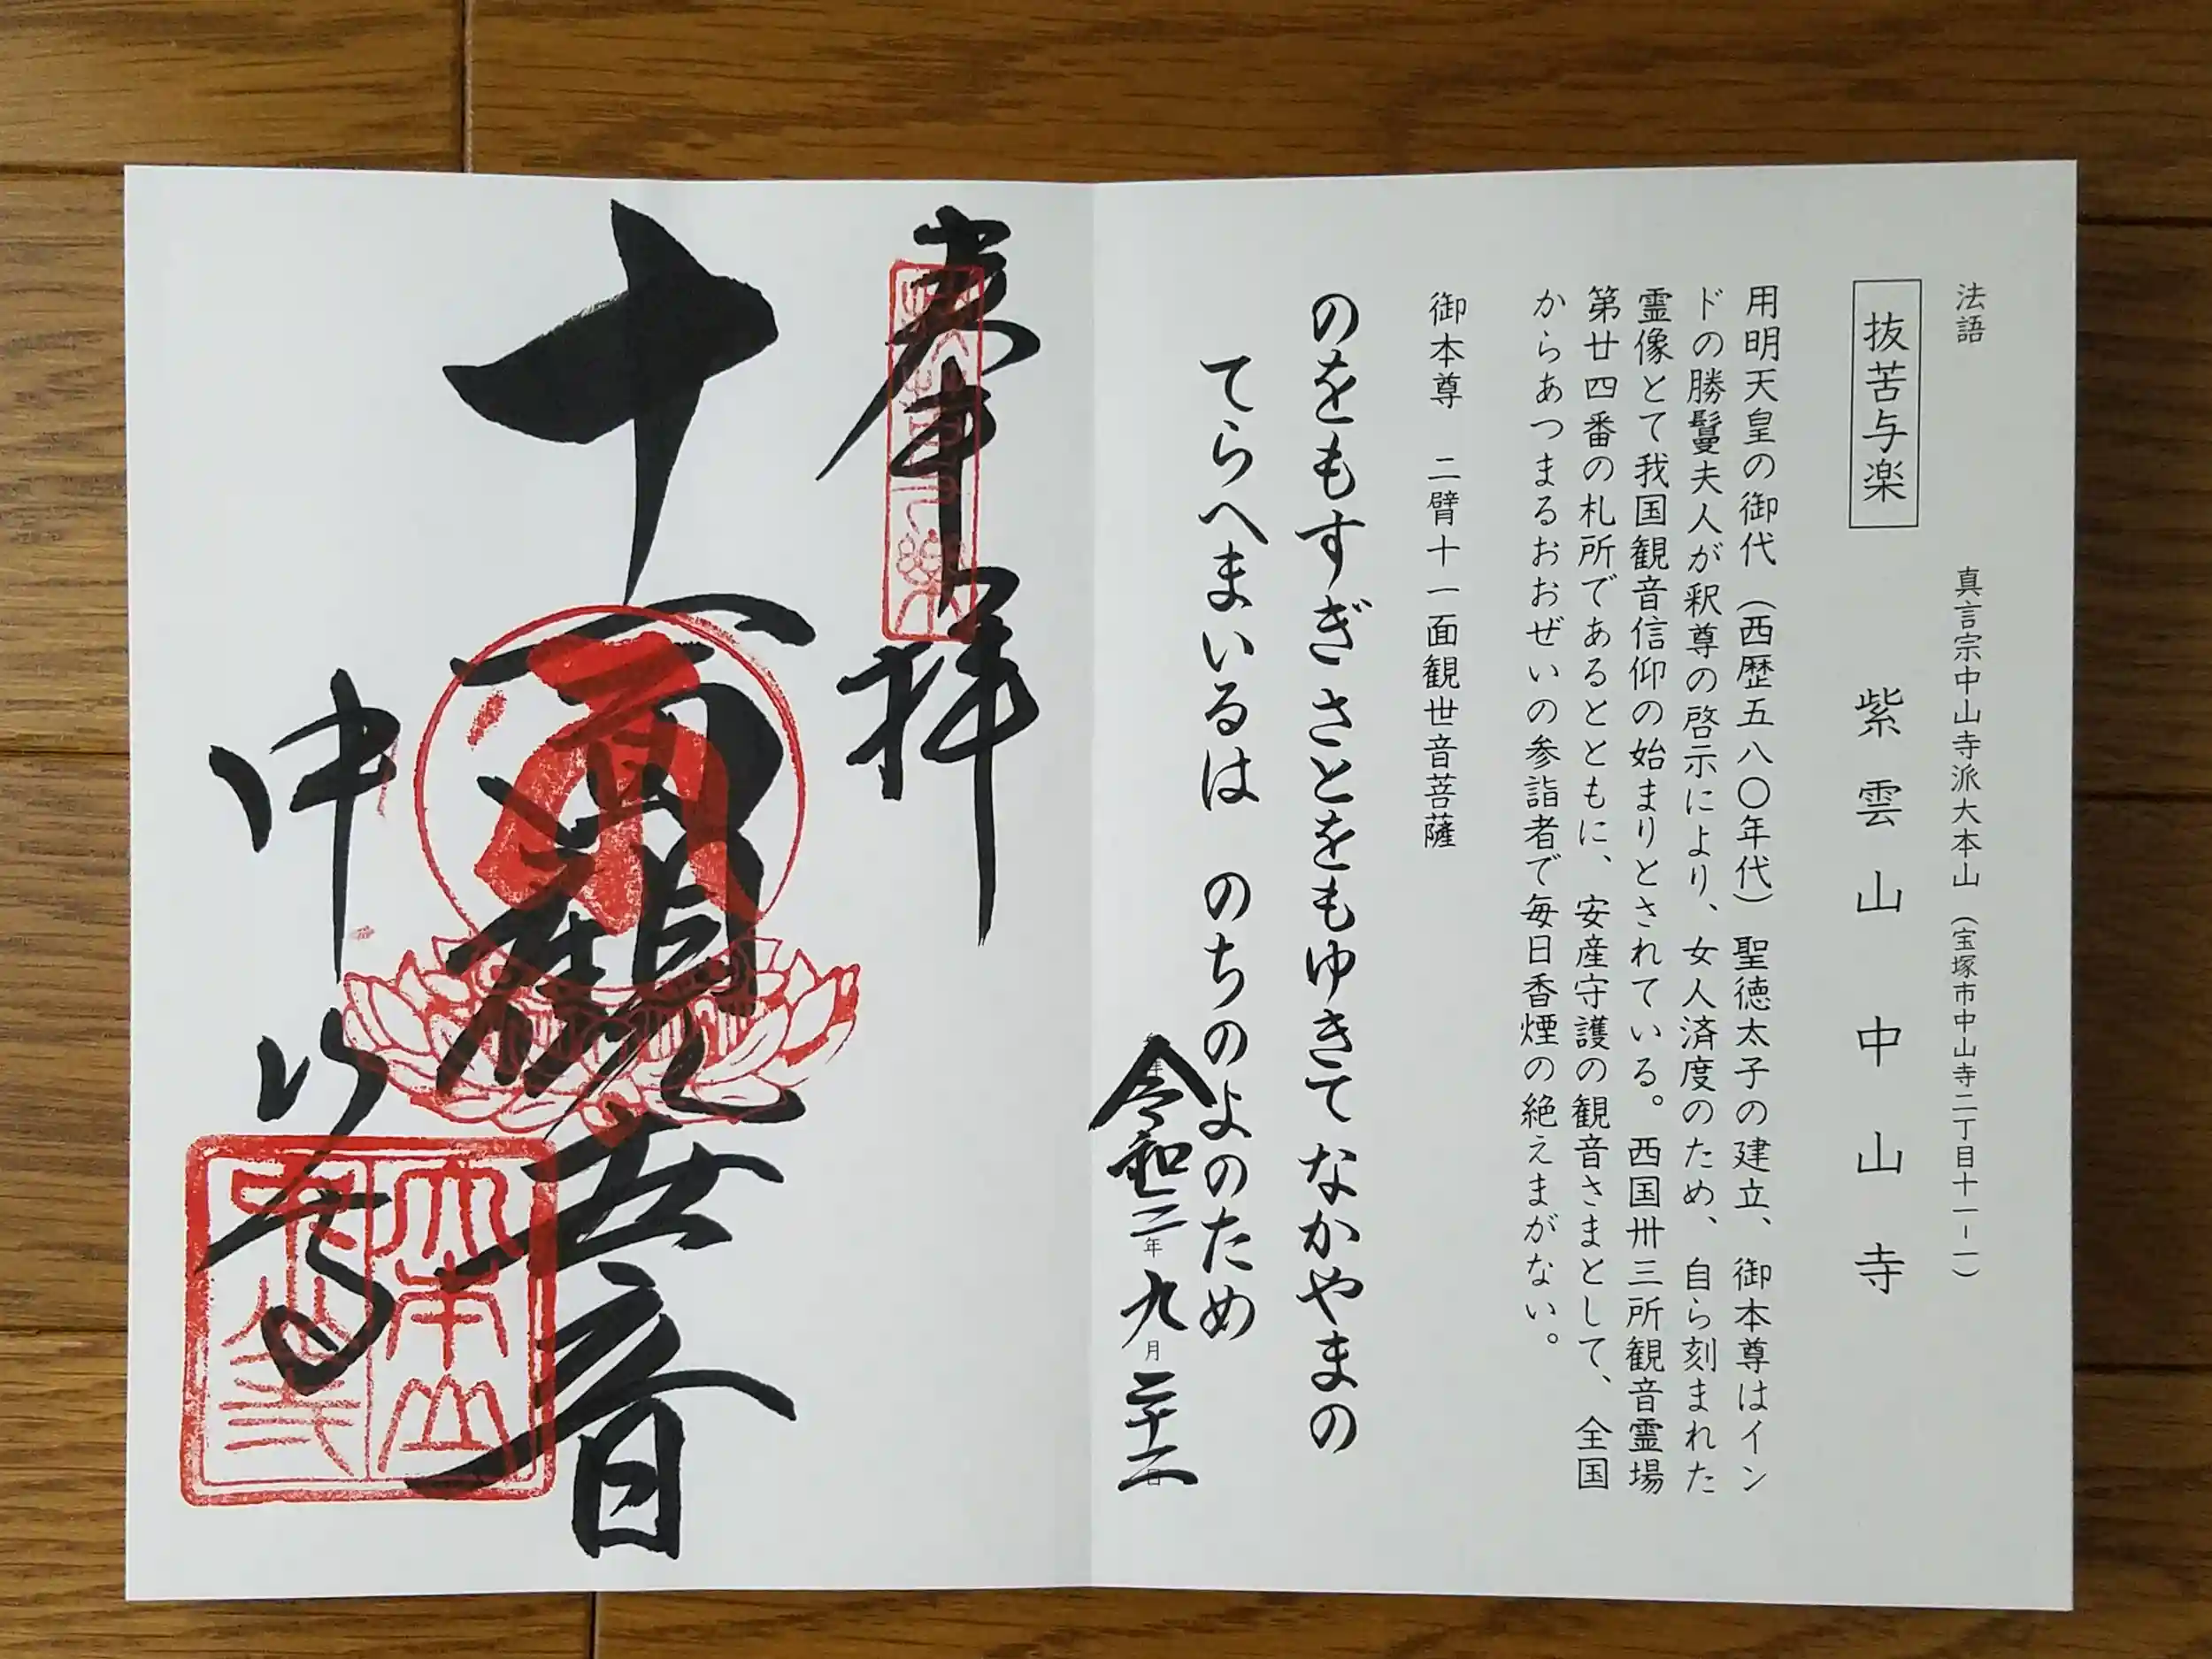 法語　真言宗中山寺派大本山（宝塚市中山寺二丁目十一－一）
抜苦与楽　紫雲山中山寺
用明天皇の御代（西歴五八〇年代）聖徳太子の建立、御本尊はイン
ドの勝鬘夫人が釈尊の啓示により、女人済度のため、自ら刻まれた
霊像とて我国観音信仰の始まりとされている。西国卅三所観音霊場
第廿四番の札所であるとともに、安産守護の観音さまとして、全国
からあつまるおおぜいの参詣者で毎日香煙の絶えまがない。
御本尊　二臂十一面観世音菩薩
のをもすぎさとをもゆきてなかやまの
てらへまいるはのちのよのため
令和二年九月二十二日
奉拝
十一面観世音
中山寺
大本山
中山寺